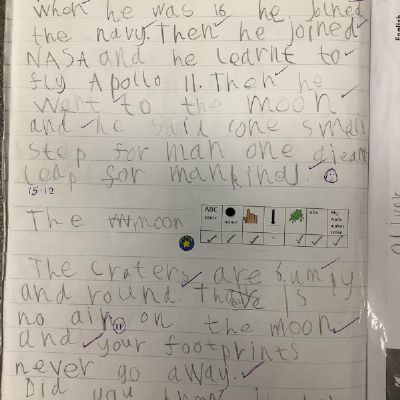 when he was 16 he joined
the navy. Then he joined
NASA and he learnt to
fly Apollo 11. Then he
went to the moon
and he said one small
step for man one gieant
leap for mankind.
15-12
The moon
ABC
My work makes sense
The craters are bumpy
and round. There is
no air on the moon
and your footprints
never go away.
Did you
English